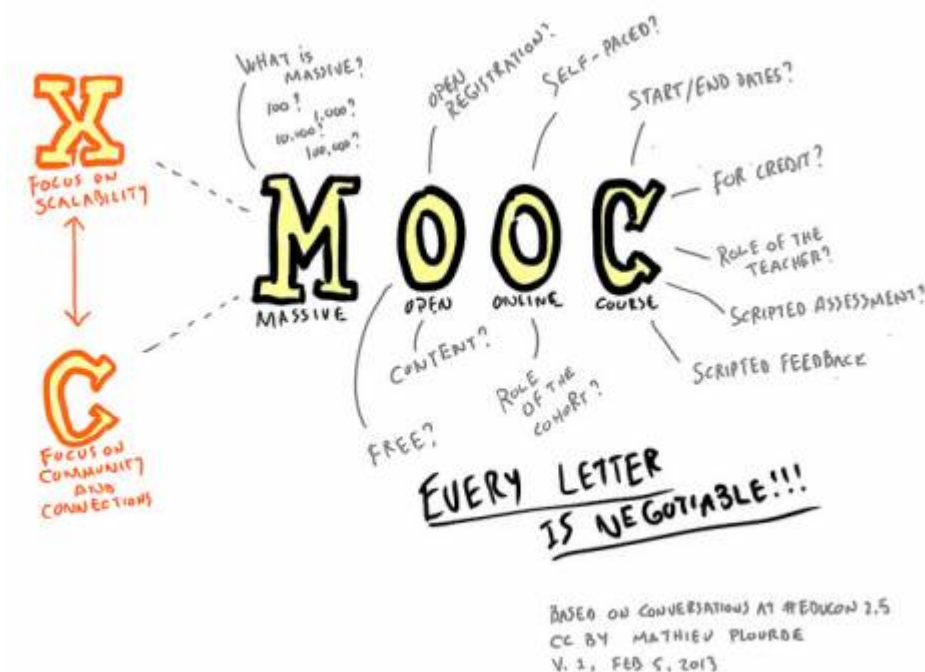 X
FOCUS ON
SCALABILITY
C
FOCUS ON
COMMUNITY
AND
CONNECTIONS
WHAT IS
MASSIVE?
100?
1,000?
10,000?
100,000?
OPEN
REGISTRATION?
SELF-PACED?
START/END DATES?
FOR CREDIT?
ROLE OF THE
TEACHER?
SCRIPTED ASSESSMENT?
SCRIPTED FEEDBACK
MOOC
MASSIVE
OPEN
ONLINE
COURSE
FREE?
CONTENT?
ROLE
OF THE
COHORT?
EVERY LETTER
IS NEGOTIABLE!!!
BASED ON CONVERSATIONS AT #EDUCON 2.5
CC BY MATHIEU PLOURDE
V. 1, FEB 5, 2013